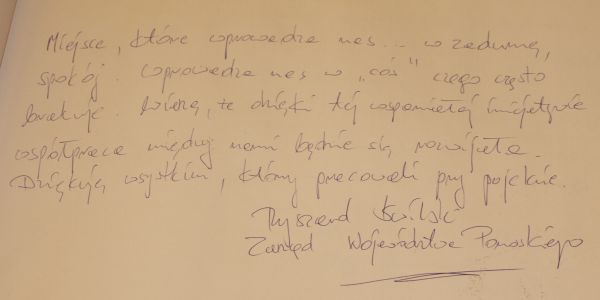 Miejsce, które wprowadza nas... w zadumę,
spokój. Wprowadza nas w „coś" czego często
brakuje. Wierzę, że dzięki tej wspaniałej inicjatywie
współpraca między nami będzie się rozwijała.
Dziękuję wszystkim, którzy pracowali przy projekcie.
Ryszard
Zarząd Województwa Pomorskiego